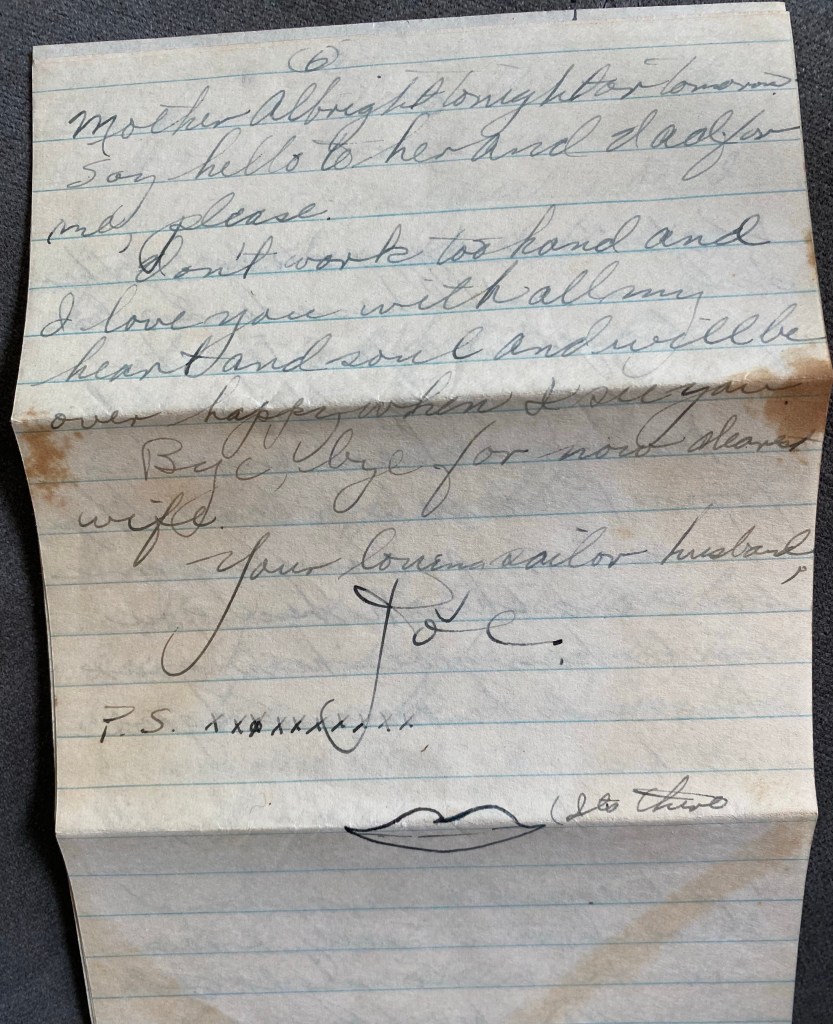 (6)
Mother Albright tonight or tomorrow
Say hello to her and Dad for
me, please.
Don't work too hard and
I love you with all my
heart and soul and will be
over happy when I see you.
Bye, bye for now dearest
wife.
Your loven sailor husband,
Joe.
P.S. xxxxxxxxxx
(Its there